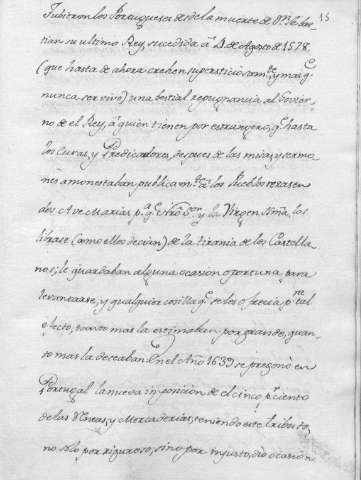 15
Tubieron los Portugueses desde la muerte de Dn. Sebas-
tian su ultimo Rey, sucedida à 4 de Agosto de 1578.
(que hasta de ahora crehen supersticiosamte. y mas q
nunca ser vivo) una bestial repugnancia al Govier-
no de el Rey, à quien tienen por estrangero, q. hasta
los Curas, y Predicadores, despues de las misas, y sermo-
nes amonestaban publicamte. à los Pueblos rezasen
dos Ave Marias, pa. q. Ntro. Sor. y la Virgen Sma. los
librase (como ellos decian) de la tirania de los Castella
nos; le guardaban alguna ocasion oportuna, para
levantarse, y qualquier cosilla q. se les ofrecia pa. tal
efecto, tanto mas la estimaban por grande, quan-
to mas la deseaban. En el Año 1639 se pregonò en
Portugal la nueva imposicion de el cinco p. ciento
de las Rentas, y Mercaderias, teniendo este tributo,
no solo por riguroso, sino por injusto, dio ocasion